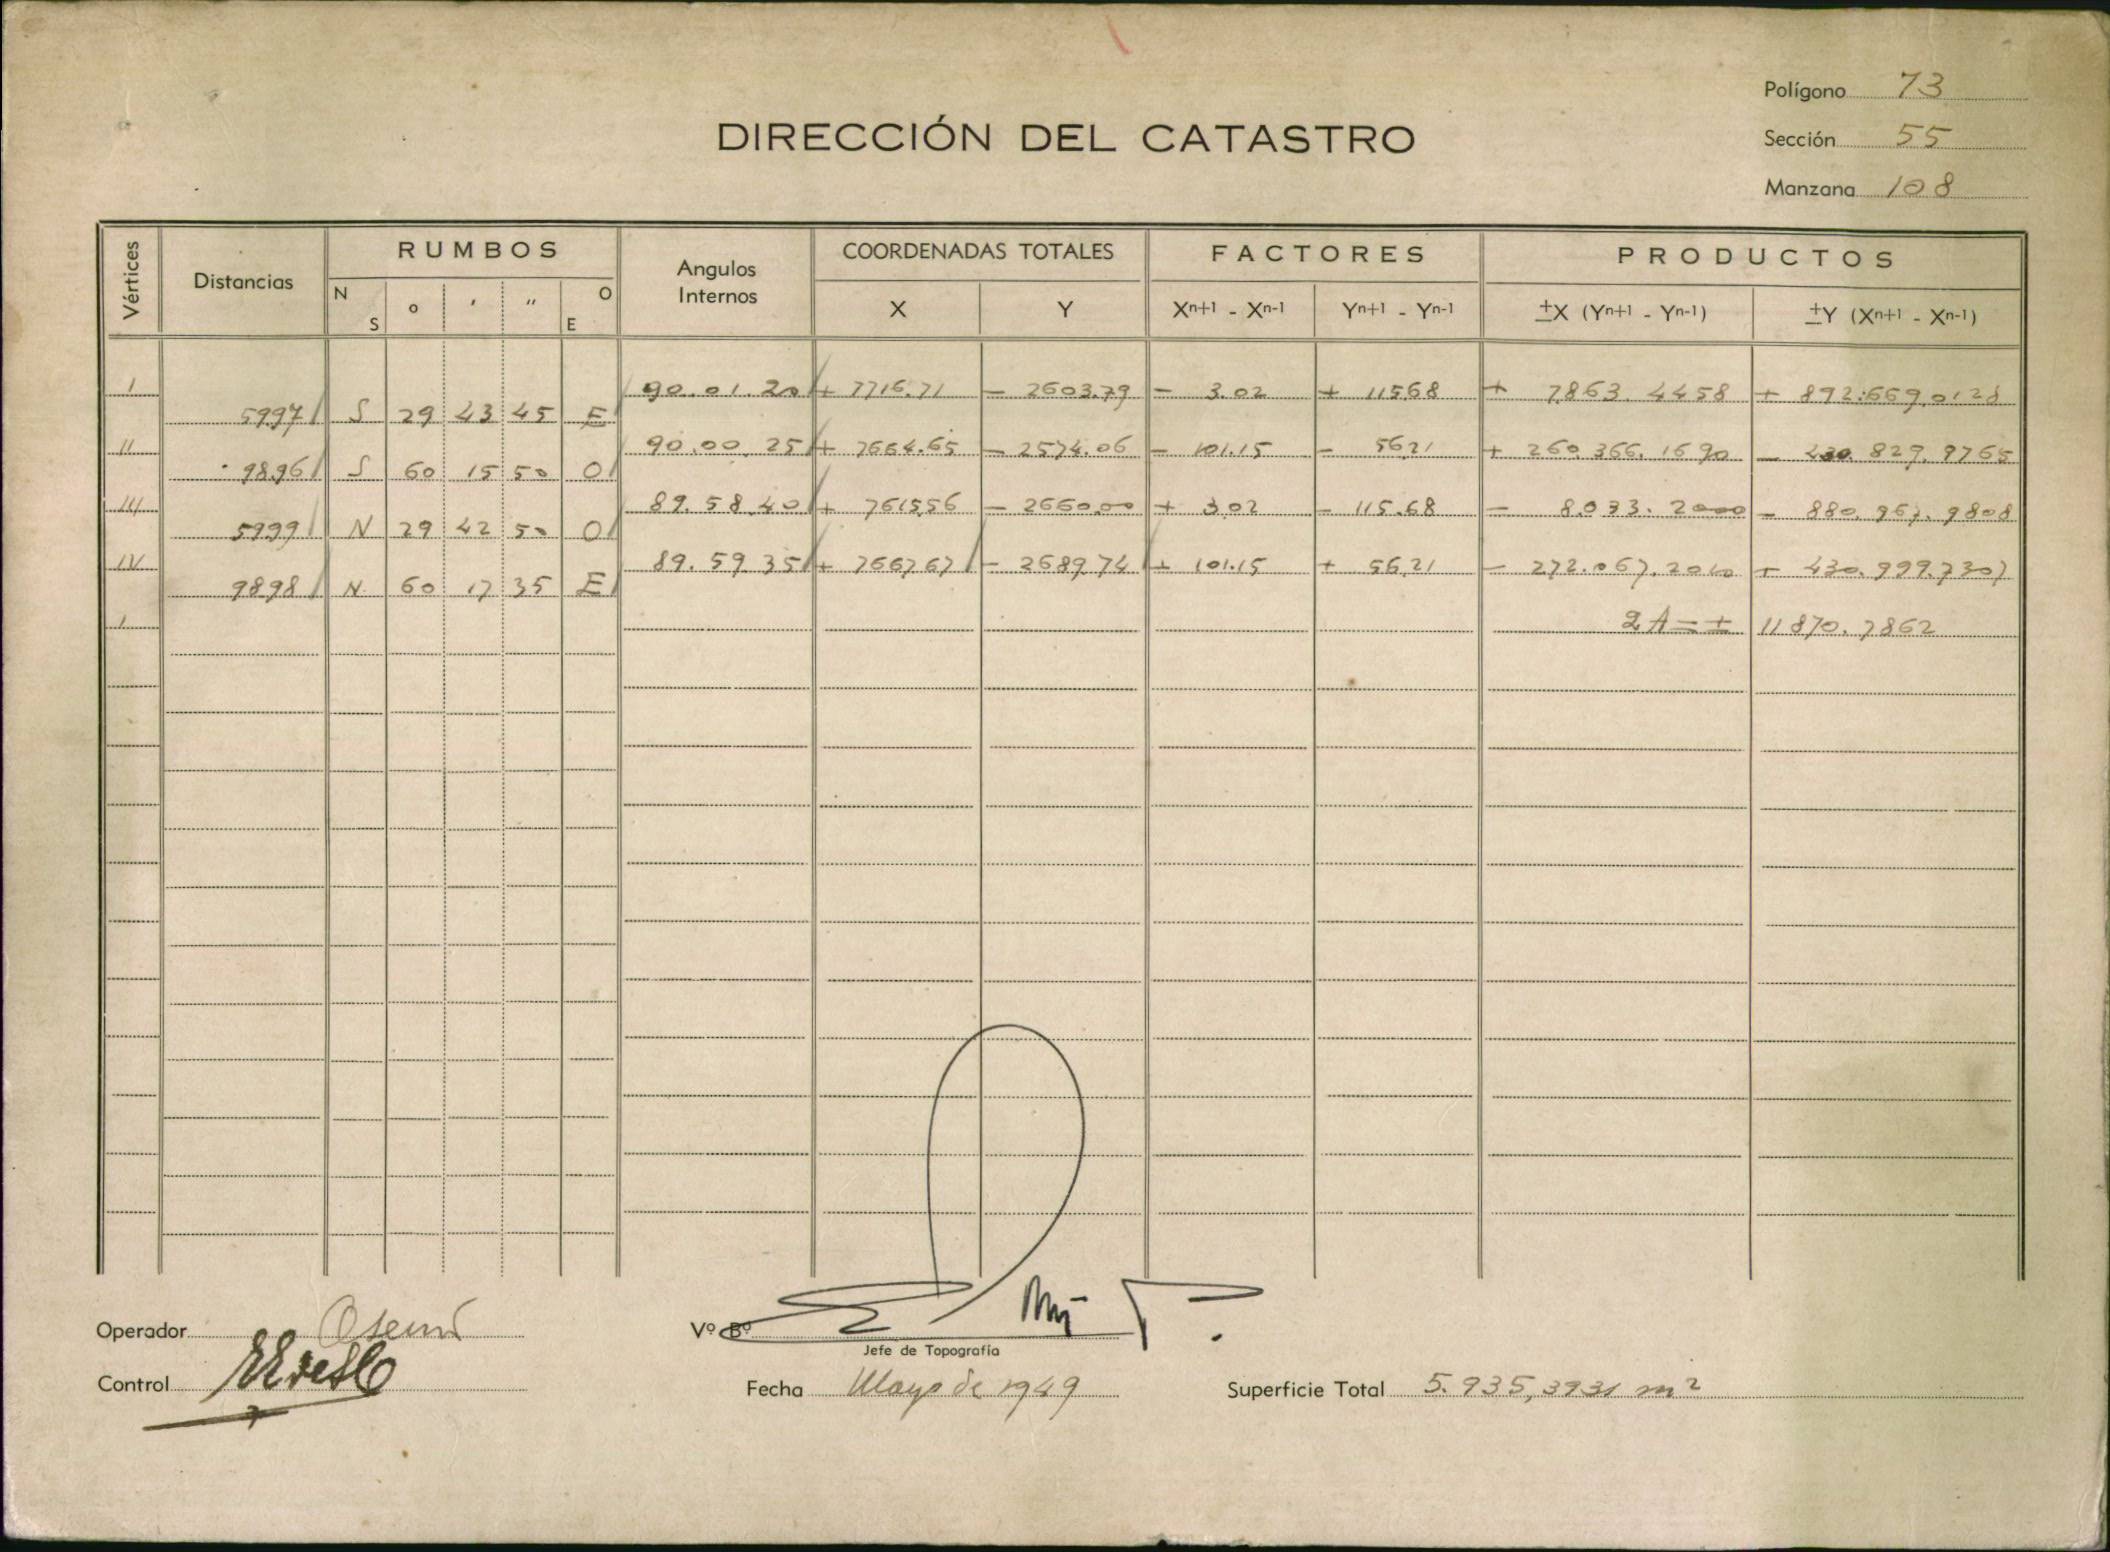 Polígono 73
DIRECCIÓN DEL CATASTRO
Sección 55
Manzana 108
Vértices Distancias RUMBOS Angulos Internos COORDENADAS TOTALES FACTORES PRODUCTOS
N S ° ' " O E X Y Xn+1 - Xn-1 Yn+1 - Yn-1 ±X (Yn+1 - Yn-1) ±Y (Xn+1 - Xn-1)
I 90.01.20 + 7716.71 - 2603.79 - 3.02 + 115.68 + 7.863.4458 + 892.669.0128
59.97 S 29 43 45 E
II 90.00.25 + 7664.65 - 2574.06 - 101.15 - 56.21 + 260.366.1690 - 430.829.9765
98.96 S 60 15 50 O
III 89.58.40 + 7615.56 - 2660.00 + 3.02 - 115.68 - 8.033.2000 - 880.967.9808
59.99 N 29 42 50 O
IV 89.59.35 + 7667.67 - 2689.74 + 101.15 + 56.21 - 272.067.2010 + 430.999.7307
98.98 N 60 17 35 E
I 2A = + 11870.7862
Operador
Vº Bº
Jefe de Topografía
Control
Fecha Mayo de 1949
Superficie Total 5.935,3931 m²